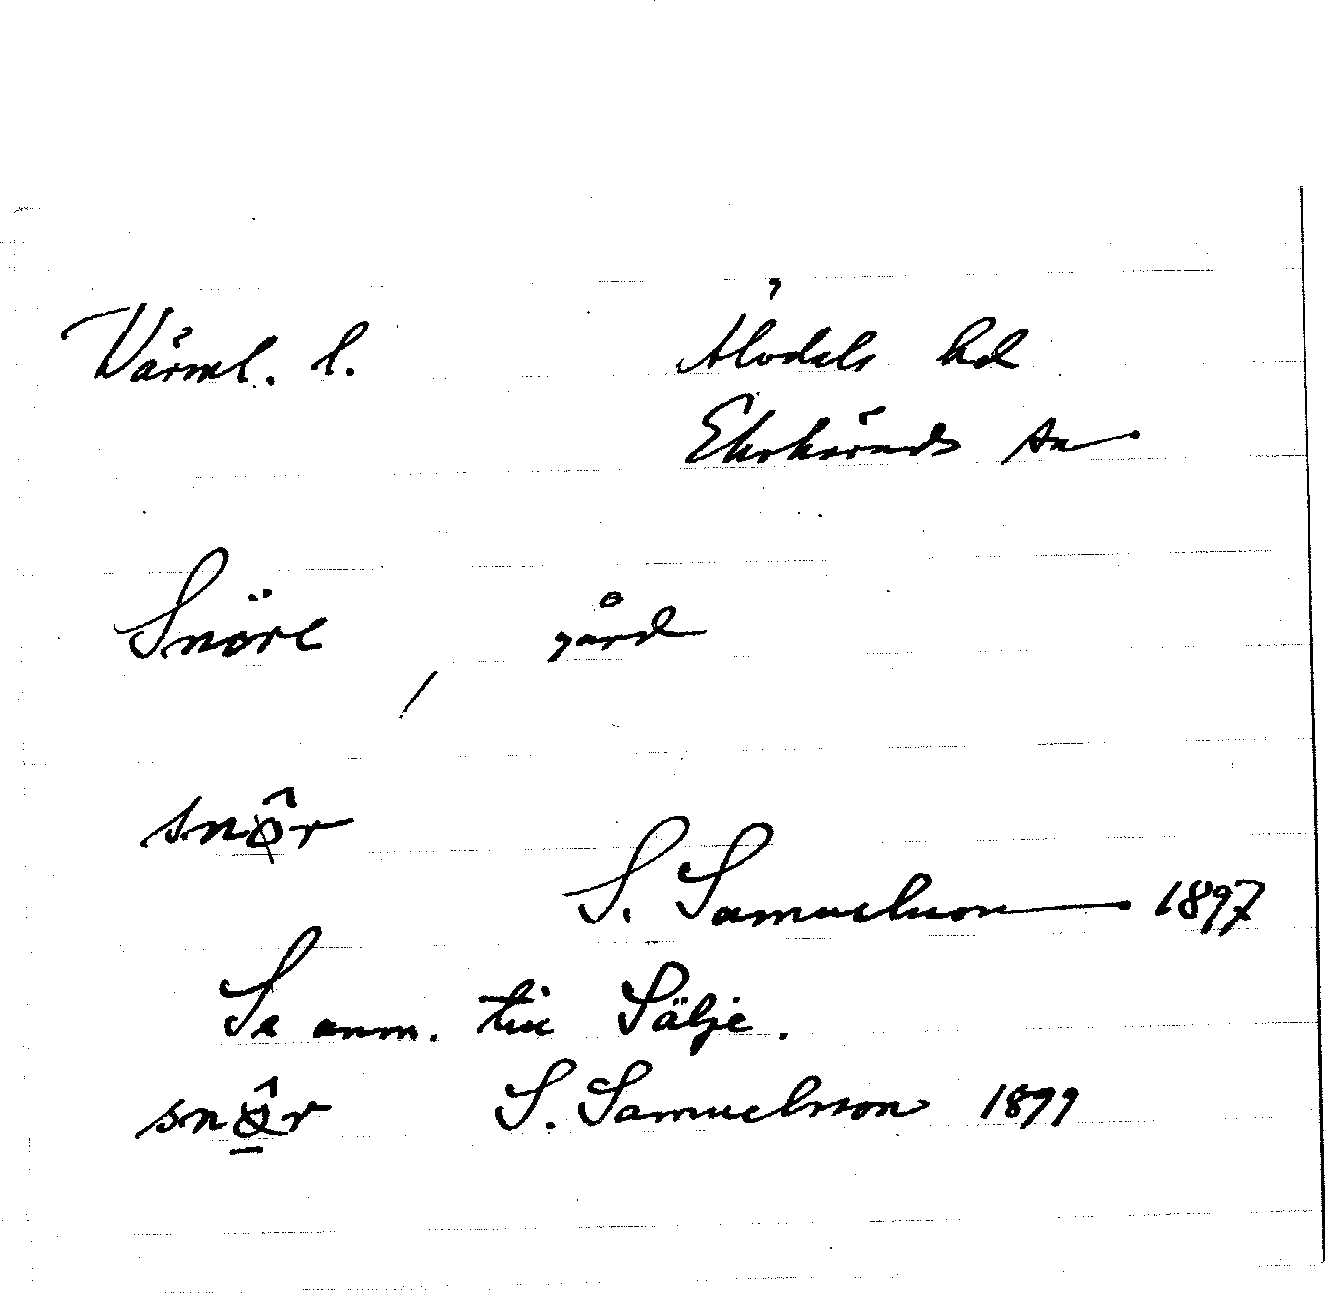 Värml. l. Älvdals hd
Ekshärads sn
Snöre, gård
snø̂r
S. Samuelsson 1897
Se anm. till Sälje.
snø̱̂r S. Samuelsson 1899